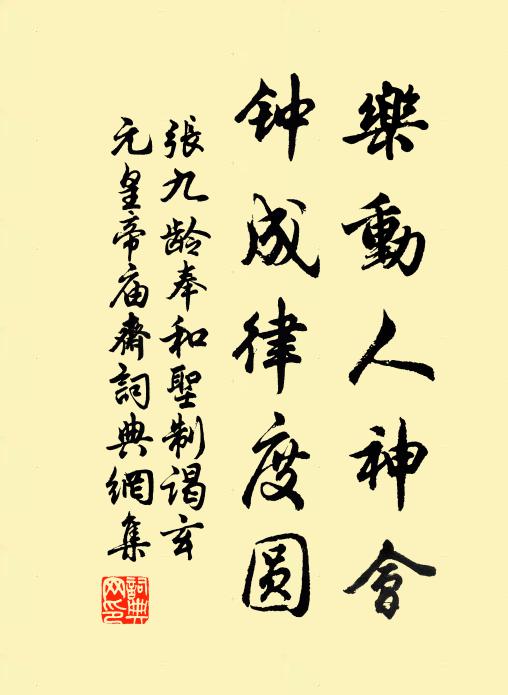 樂動人神會
钟成律度圆
張九龄奉和聖制謁玄
元皇帝庙齋詞典網集